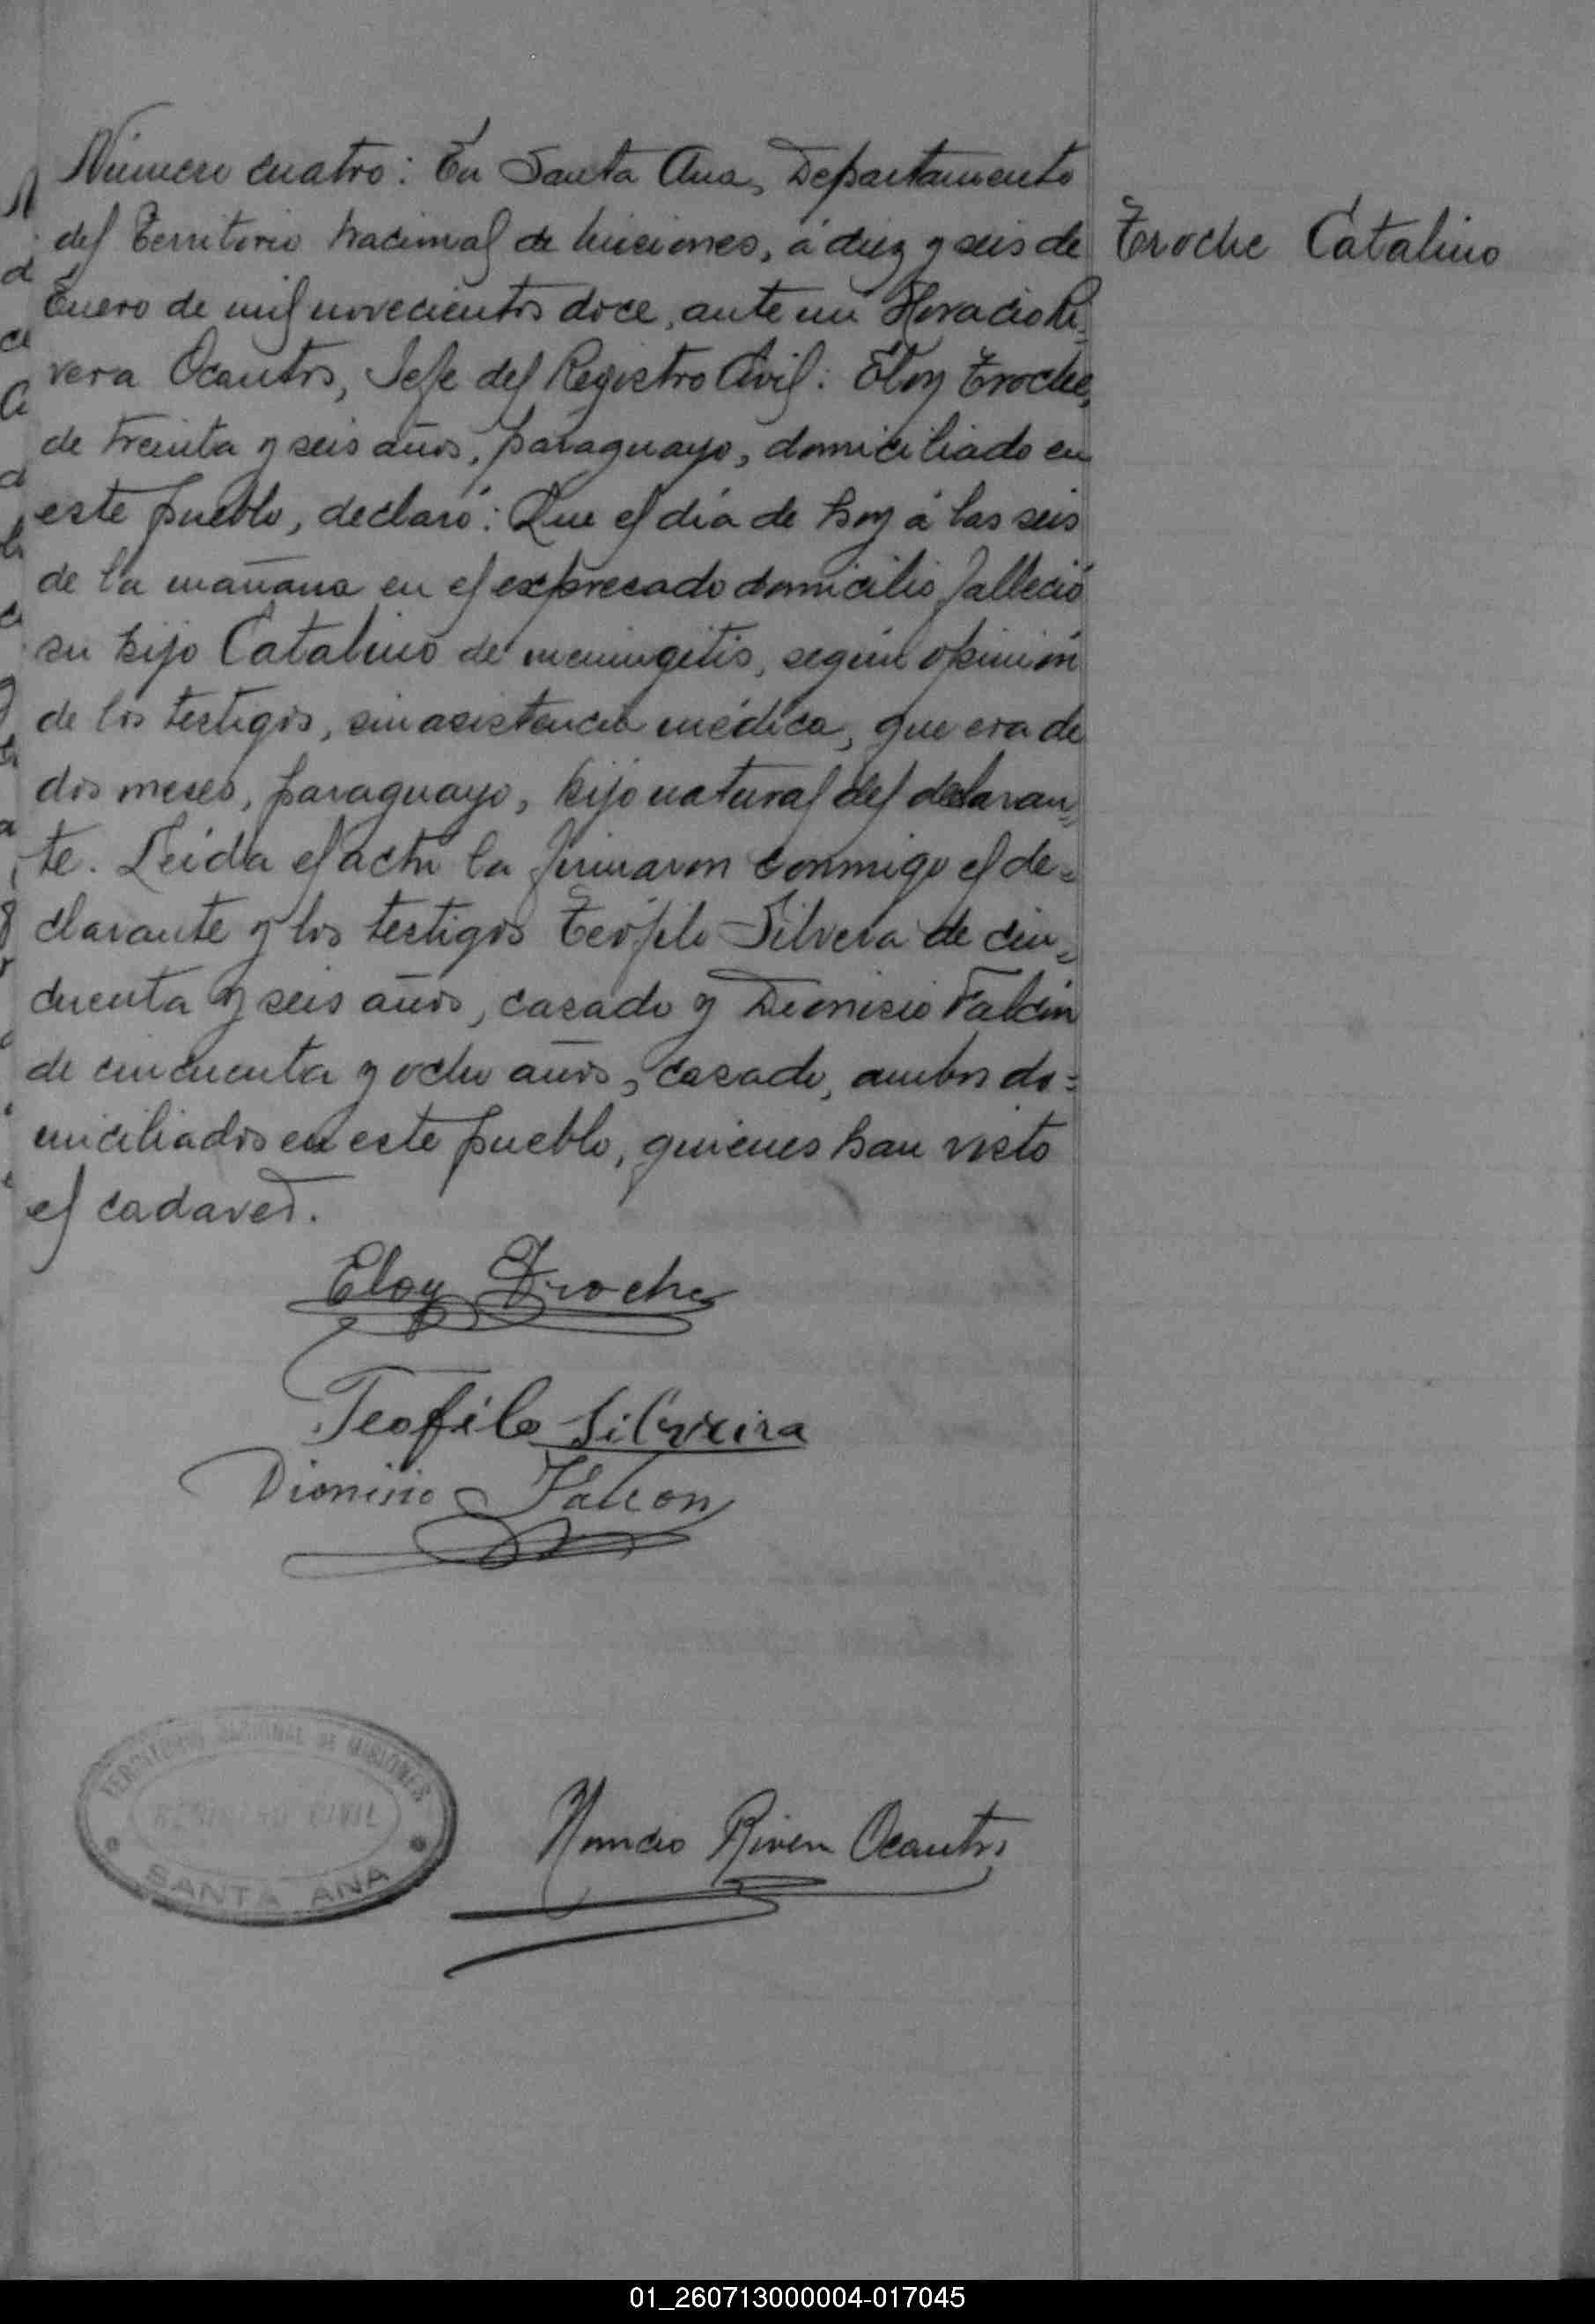 Número cuatro: En Santa Ana, Departamento
del Territorio Nacional de Misiones, á diez y seis de
Enero de mil novecientos doce, ante mi Horacio Ri-
vera Ocantos, Jefe del Registro Civil: Eloy Troche,
de treinta y seis años, paraguayo, domiciliado en
este pueblo, declaró: Que el día de hoy á las seis
de la mañana en el expresado domicilio falleció
su hijo Catalino de meningitis, según opinión
de los testigos, sin asistencia médica, que era de
dos meses, paraguayo, hijo natural del declaran-
te. Leída el acta la firmaron conmigo el de=
clarante y los testigos Teófilo Silvera de cin-
cuenta y seis años, casado y Dionisio Falcón
de cincuenta y ocho años, casado, ambos do=
miciliados en este pueblo, quienes han visto
el cadaver.
Troche Catalino
Eloy Troche
Teofilo Silveira
Dionisio Falcon
TERRITORIO NACIONAL DE MISIONES
SANTA ANA
Horacio Rivera Ocantos
01_260713000004-017045